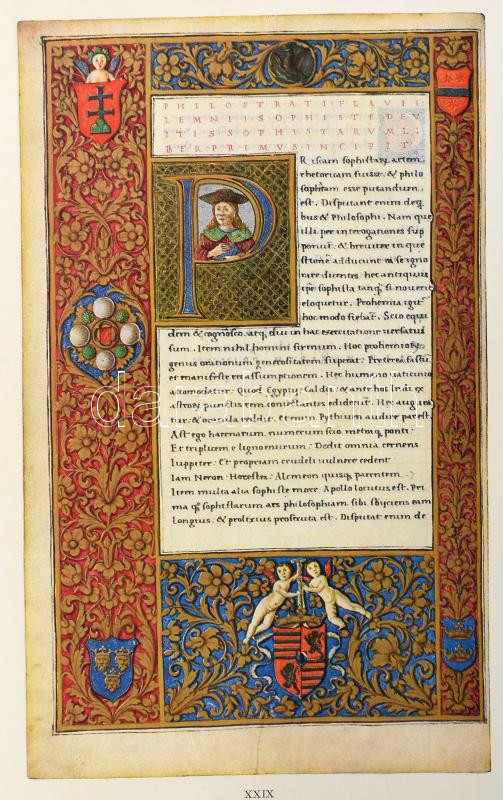 PHILOSTRATI FLAVII
LEMNII SOPHISTE DE V
ITIS SOPHISTARVM LI
BER PRIMVS INCIPIT
PRiscam sophistarū artem
rhetoricam fuisse & philo
sophiam esse putandum
est. Disputant enim de q
bus & Philosophi. Nam que
illi per interrogationes sup
ponunt & breuiter in que
stione adducunt
rare dicentes hec antiquus
ipse sophista tanq̃ si nouerit
eloquetur. Prohemia
hoc modo Scio equi
dem & cognosco. atq. diu in hac exercitatione versatus
sum. Item nihil homini firmum. Hoc prohemiorum
genus orationum generositatem superat. Preterea
et manifeste rei assumptionem. Hec humano vaticinio
accomodatur. Quod Egyptij Caldei & ante hos Indi ex
astrorū punctis rem edidert. Hec
& oracula reddit et enim Pythium audire par est.
Ast ego harenarum numerum scio metaq. ponti.
Et triplicem e ligno murum Dedit omnia cernens
Iuppiter. Et propriam crudeli vulnere cedent
Iam Neron. Horestes. Alcmeon quisq. parentem
Item multa alia sophiste more Apollo locutus est. Pri
ma q̃ sophistarum ars philosophiam sibi subijciens eam
longius & prolixius prosecuta est. Disputat enim de
XXIX